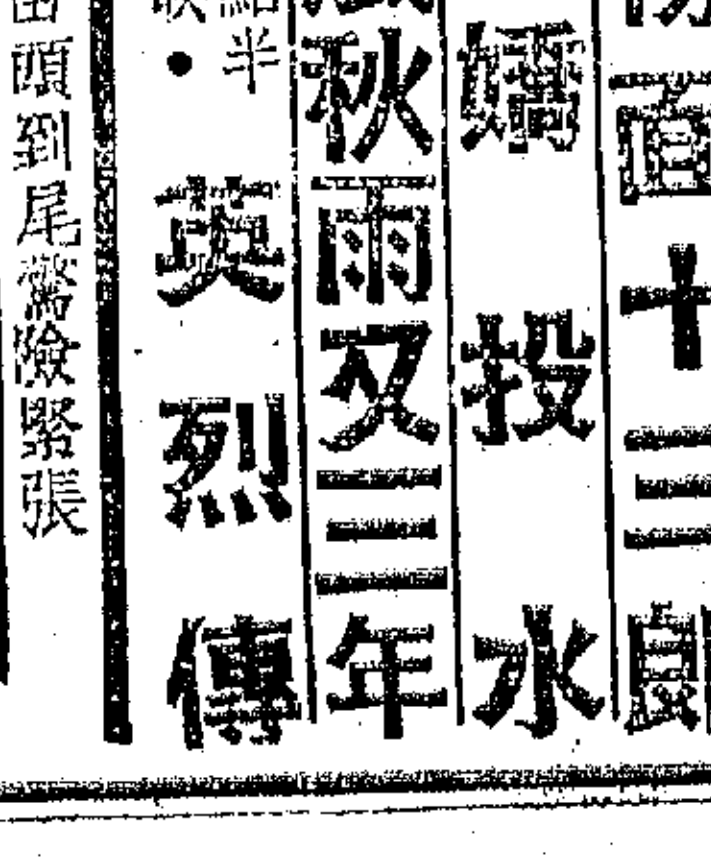 十三
嬌投水
秋雨又三年
半
英烈傳
頭到尾驚險緊張